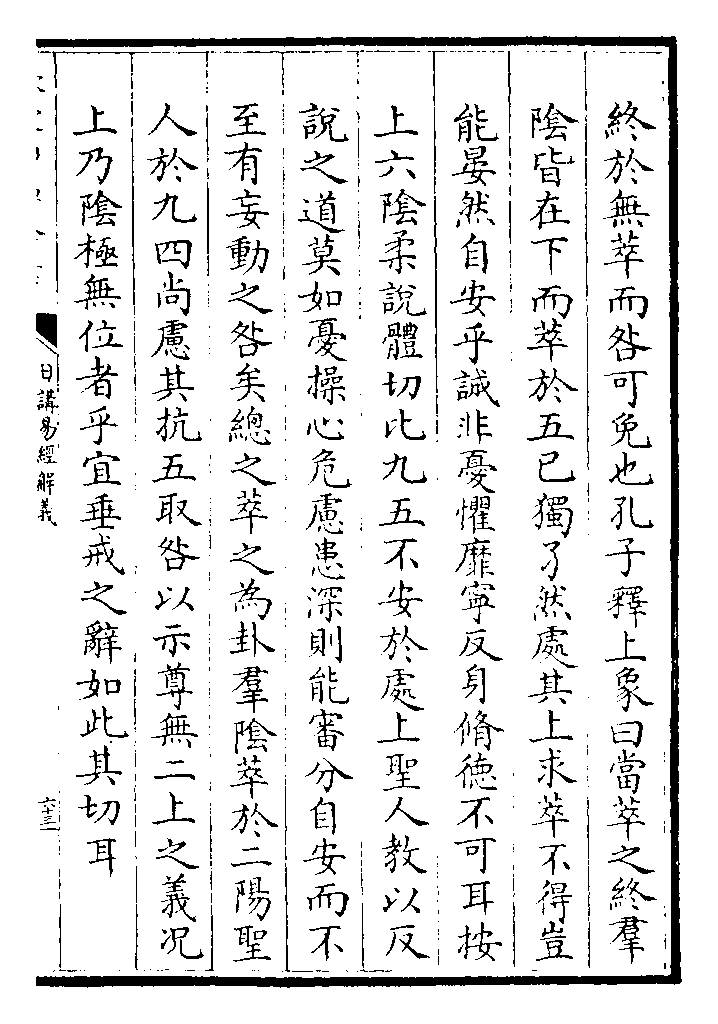 終於無萃而咎可免也孔子釋上象曰當萃之終羣
陰皆在下而萃於五已獨孑然處其上求萃不得豈
能晏然自安乎誠非憂懼靡寧反身脩德不可耳按
上六陰柔說體切比九五不安於處上聖人教以反
說之道莫如憂操心危慮患深則能審分自安而不
至有妄動之咎矣總之萃之為卦羣陰萃於二陽聖
人於九四尚慮其抗五取咎以示尊無二上之義况
上乃陰極無位者乎宜垂戒之辭如此其切耳
日講易經解義
六十三